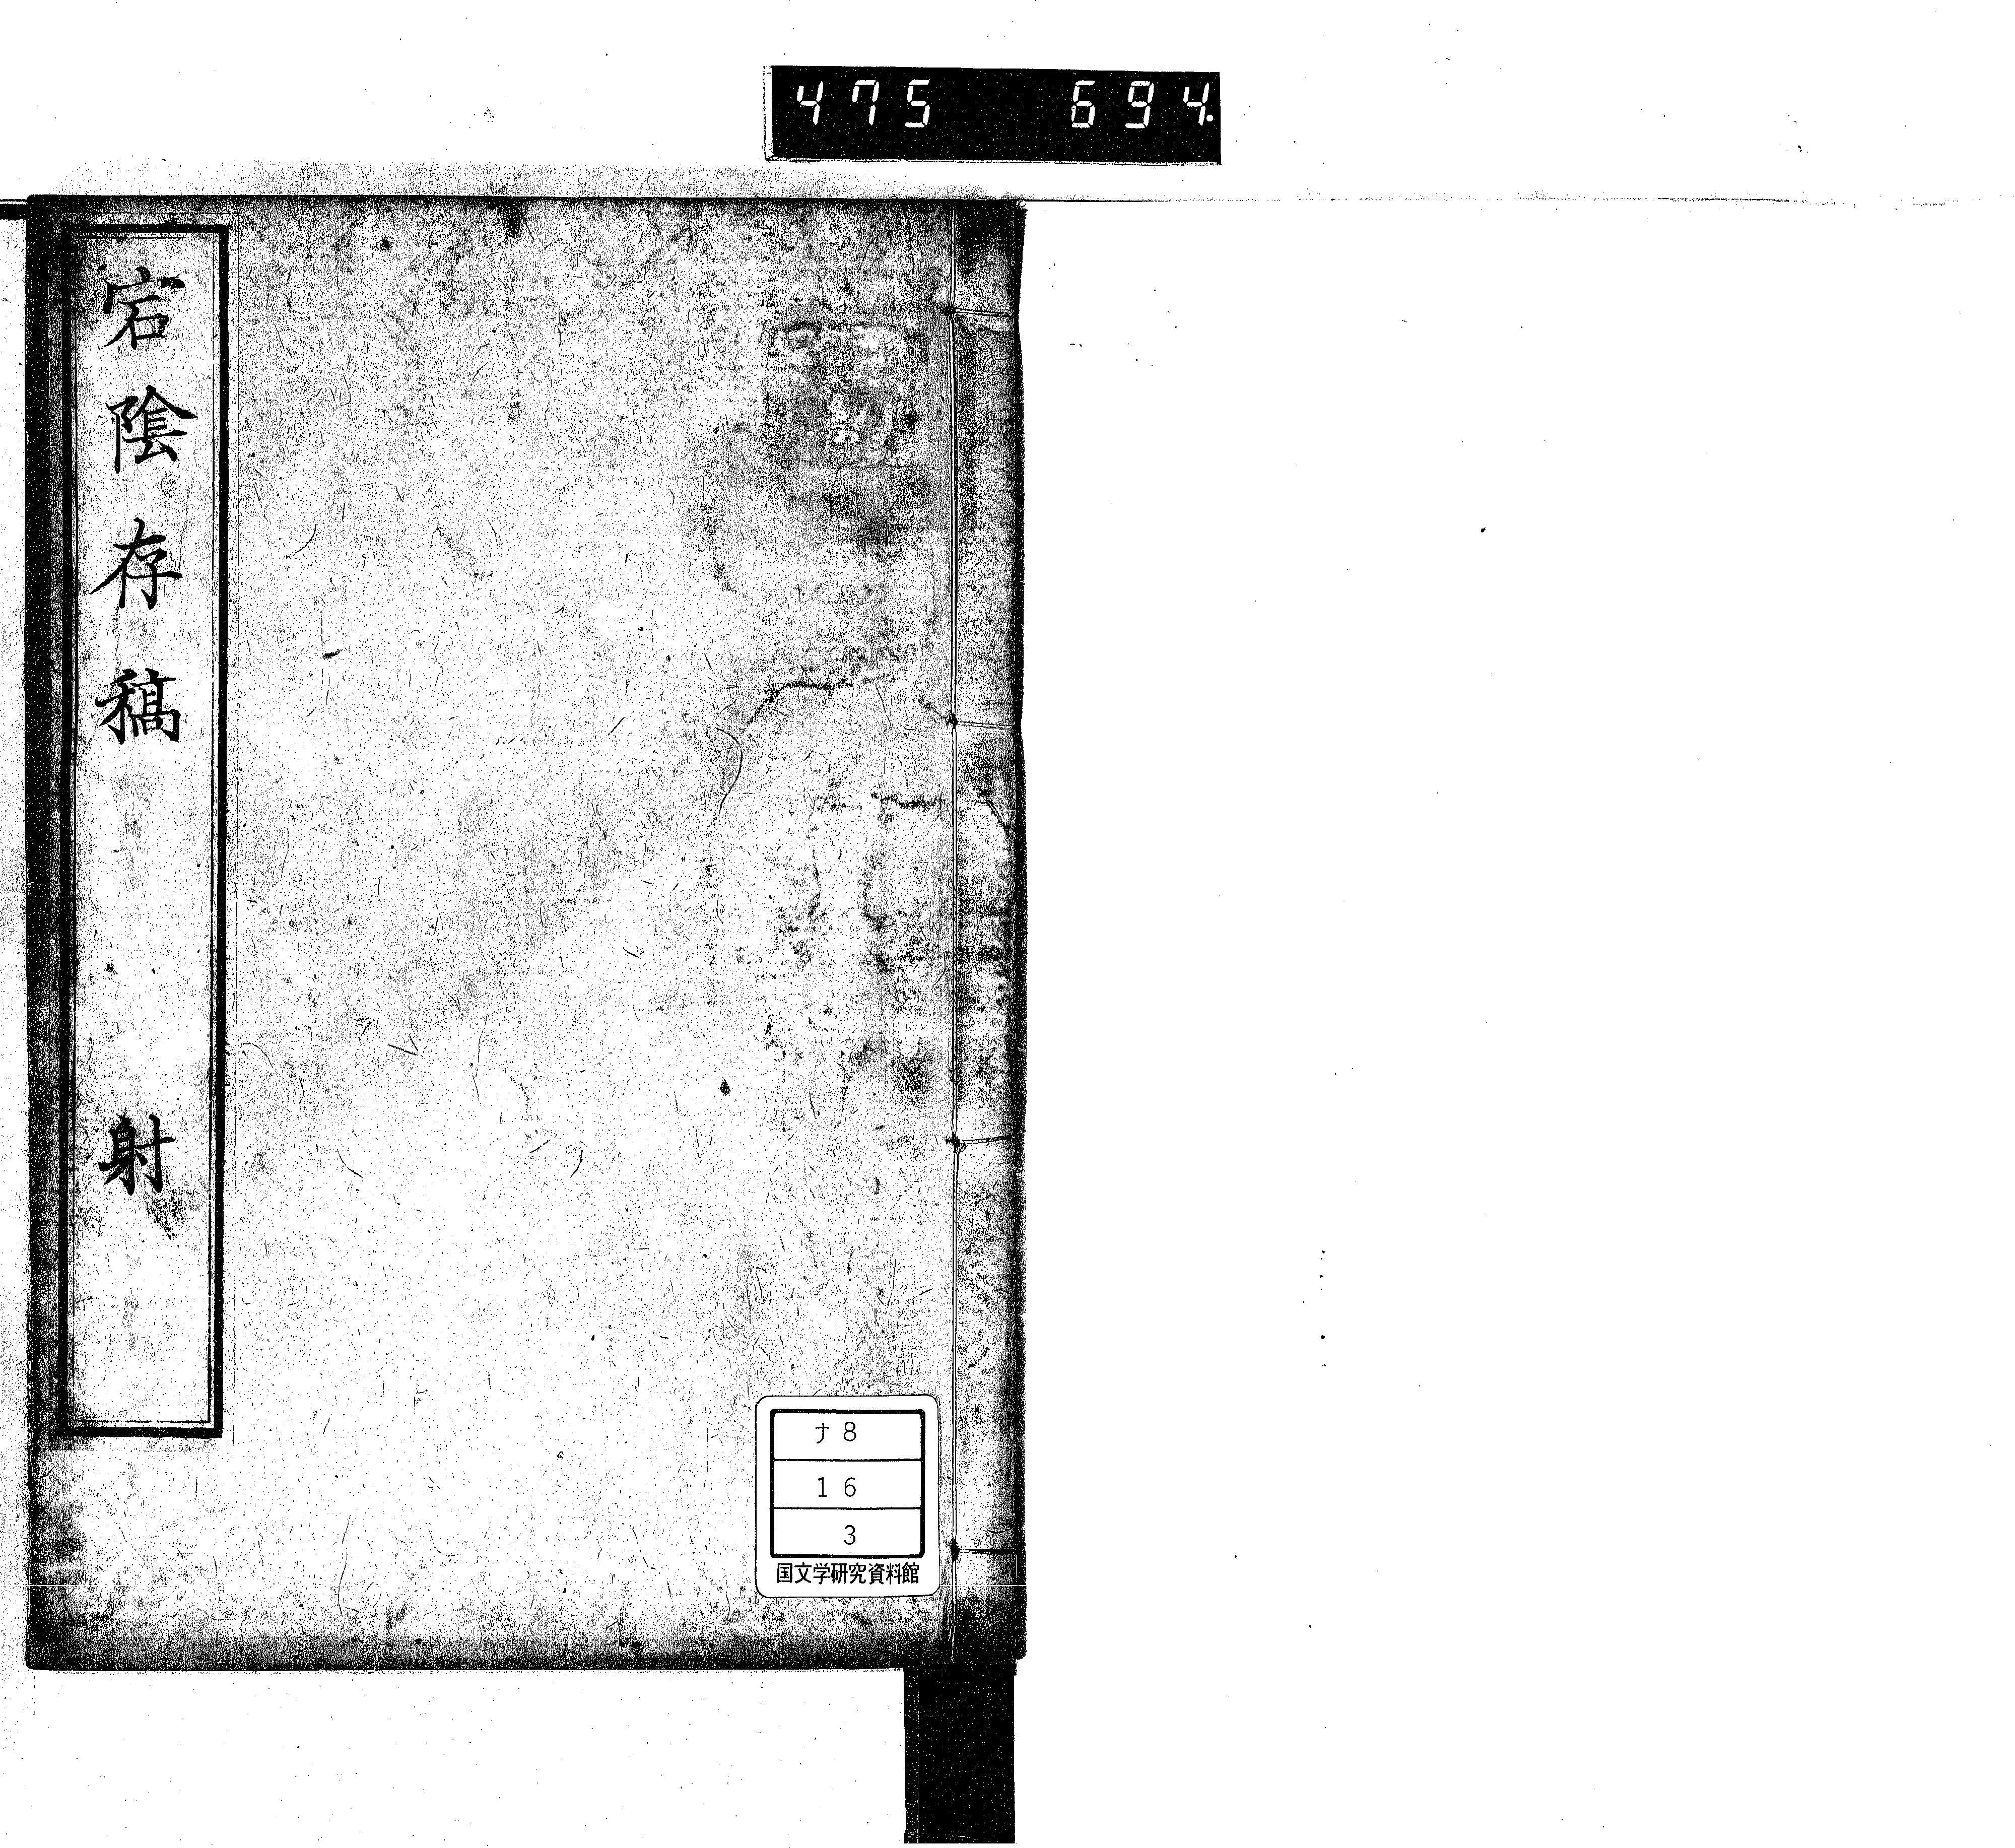 475 694.
宕陰存稿 射
ナ8
16
3
国文学研究資料館